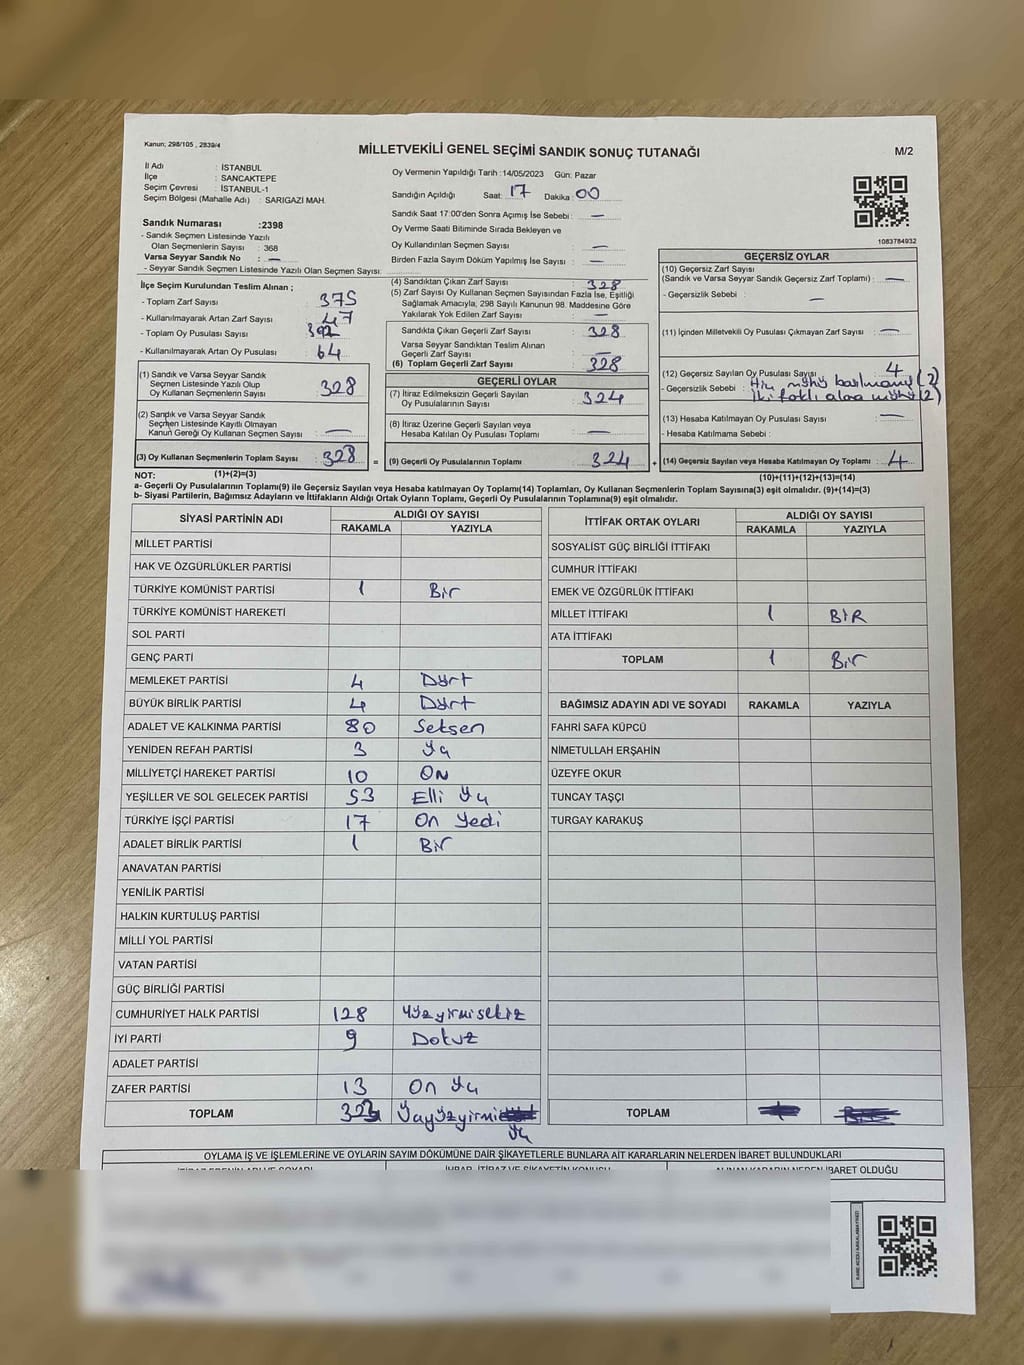 Kanun; 298/105 , 2839/4
MİLLETVEKİLİ GENEL SEÇİMİ SANDIK SONUÇ TUTANAĞI
M/2
İl Adı : İSTANBUL
İlçe : SANCAKTEPE
Seçim Çevresi : İSTANBUL-1
Seçim Bölgesi (Mahalle Adı) : SARIGAZİ MAH.
Oy Vermenin Yapıldığı Tarih :14/05/2023 Gün: Pazar
Sandığın Açıldığı Saat: 17 Dakika: 00
Sandık Saat 17:00'den Sonra Açımış İse Sebebi: —
Oy Verme Saati Bitiminde Sırada Bekleyen ve
Oy Kullandırılan Seçmen Sayısı : —
Birden Fazla Sayım Döküm Yapılmış İse Sayısı : —
1083784932
Sandık Numarası :2398
- Sandık Seçmen Listesinde Yazılı
Olan Seçmenlerin Sayısı : 368
Varsa Seyyar Sandık No : —
- Seyyar Sandık Seçmen Listesinde Yazılı Olan Seçmen Sayısı:
İlçe Seçim Kurulundan Teslim Alınan ;
- Toplam Zarf Sayısı : 375
- Kullanılmayarak Artan Zarf Sayısı : 47
- Toplam Oy Pusulası Sayısı : 392
- Kullanılmayarak Artan Oy Pusulası : 64
(1) Sandık ve Varsa Seyyar Sandık
Seçmen Listesinde Yazılı Olup
Oy Kullanan Seçmenlerin Sayısı : 328
(2) Sandık ve Varsa Seyyar Sandık
Seçmen Listesinde Kayıtlı Olmayan
Kanun Gereği Oy Kullanan Seçmen Sayısı : —
(3) Oy Kullanan Seçmenlerin Toplam Sayısı : 328
(4) Sandıktan Çıkan Zarf Sayısı : 328
(5) Zarf Sayısı Oy Kullanan Seçmen Sayısından Fazla İse, Eşitliği
Sağlamak Amacıyla, 298 Sayılı Kanunun 98. Maddesine Göre
Yakılarak Yok Edilen Zarf Sayısı : —
Sandıkta Çıkan Geçerli Zarf Sayısı : 328
Varsa Seyyar Sandıktan Teslim Alınan
Geçerli Zarf Sayısı : —
(6) Toplam Geçerli Zarf Sayısı : 328
GEÇERLİ OYLAR
(7) İtiraz Edilmeksizin Geçerli Sayılan
Oy Pusulalarının Sayısı : 324
(8) İtiraz Üzerine Geçerli Sayılan veya
Hesaba Katılan Oy Pusulası Toplamı : —
= (9) Geçerli Oy Pusulalarının Toplamı : 324
GEÇERSİZ OYLAR
(10) Geçersiz Zarf Sayısı
(Sandık ve Varsa Seyyar Sandık Geçersiz Zarf Toplamı) : —
- Geçersizlik Sebebi : —
(11) İçinden Milletvekili Oy Pusulası Çıkmayan Zarf Sayısı : —
(12) Geçersiz Sayılan Oy Pusulası Sayısı : 4
- Geçersizlik Sebebi : Hiç mühür basılmamış (2)
İki farklı alana mühür (2)
(13) Hesaba Katılmayan Oy Pusulası Sayısı : —
- Hesaba Katılmama Sebebi :
+ (14) Geçersiz Sayılan veya Hesaba Katılmayan Oy Toplamı : 4
NOT: (1)+(2)=(3)
(10)+(11)+(12)+(13)=(14)
a- Geçerli Oy Pusulalarının Toplamı(9) ile Geçersiz Sayılan veya Hesaba katılmayan Oy Toplamı(14) Toplamları, Oy Kullanan Seçmenlerin Toplam Sayısına(3) eşit olmalıdır. (9)+(14)=(3)
b- Siyasi Partilerin, Bağımsız Adayların ve İttifakların Aldığı Ortak Oyların Toplamı, Geçerli Oy Pusulalarının Toplamına(9) eşit olmalıdır.
SİYASİ PARTİNİN ADI ALDIĞI OY SAYISI
RAKAMLA YAZIYLA
MİLLET PARTİSİ
HAK VE ÖZGÜRLÜKLER PARTİSİ
TÜRKİYE KOMÜNİST PARTİSİ 1 Bir
TÜRKİYE KOMÜNİST HAREKETİ
SOL PARTİ
GENÇ PARTİ
MEMLEKET PARTİSİ 4 Dört
BÜYÜK BİRLİK PARTİSİ 4 Dört
ADALET VE KALKINMA PARTİSİ 80 Seksen
YENİDEN REFAH PARTİSİ 3 Üç
MİLLİYETÇİ HAREKET PARTİSİ 10 ON
YEŞİLLER VE SOL GELECEK PARTİSİ 53 Elli Üç
TÜRKİYE İŞÇİ PARTİSİ 17 On Yedi
ADALET BİRLİK PARTİSİ 1 Bir
ANAVATAN PARTİSİ
YENİLİK PARTİSİ
HALKIN KURTULUŞ PARTİSİ
MİLLİ YOL PARTİSİ
VATAN PARTİSİ
GÜÇ BİRLİĞİ PARTİSİ
CUMHURİYET HALK PARTİSİ 128 Yüzyirmisekiz
İYİ PARTİ 9 Dokuz
ADALET PARTİSİ
ZAFER PARTİSİ 13 On Üç
TOPLAM 323 Üçyüzyirmi
Üç
İTTİFAK ORTAK OYLARI ALDIĞI OY SAYISI
RAKAMLA YAZIYLA
SOSYALİST GÜÇ BİRLİĞİ İTTİFAKI
CUMHUR İTTİFAKI
EMEK VE ÖZGÜRLÜK İTTİFAKI
MİLLET İTTİFAKI 1 BİR
ATA İTTİFAKI
TOPLAM 1 Bir
BAĞIMSIZ ADAYIN ADI VE SOYADI RAKAMLA YAZIYLA
FAHRİ SAFA KÜPCÜ
NİMETULLAH ERŞAHİN
ÜZEYFE OKUR
TUNCAY TAŞÇI
TURGAY KARAKUŞ
TOPLAM
OYLAMA İŞ VE İŞLEMLERİNE VE OYLARIN SAYIM DÖKÜMÜNE DAİR ŞİKAYETLERLE BUNLARA AİT KARARLARIN NELERDEN İBARET BULUNDUKLARI
İTİRAZ EDENİN ADI VE SOYADI İHBAR, İTİRAZ VE ŞİKAYETİN KONUSU ALINAN KARARIN NEDEN İBARET OLDUĞU